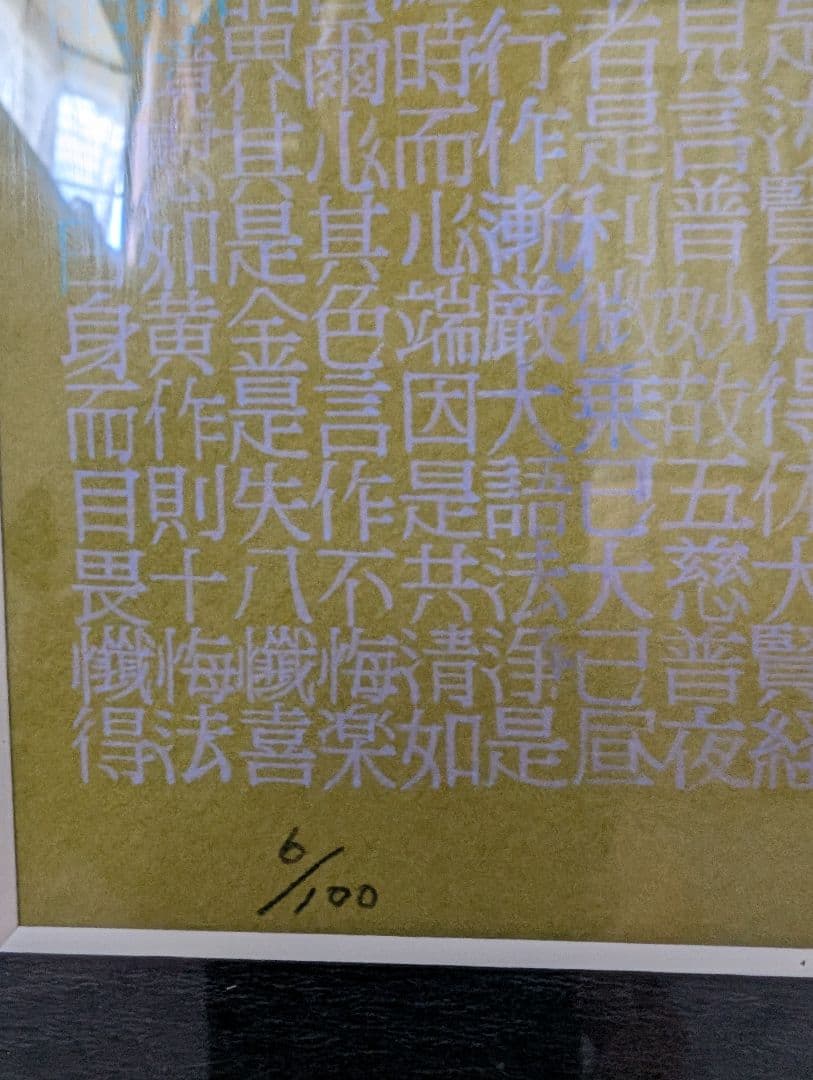 界爾時行者見是
其心而作是言
如是其心漸利普賢
身黄金色端厳微妙見
而作是言因大乗故得
目則失作是語已五体
畏十八不共法大慈大
懺悔懺悔清浄已普賢
得法喜楽如是昼夜経
6/100